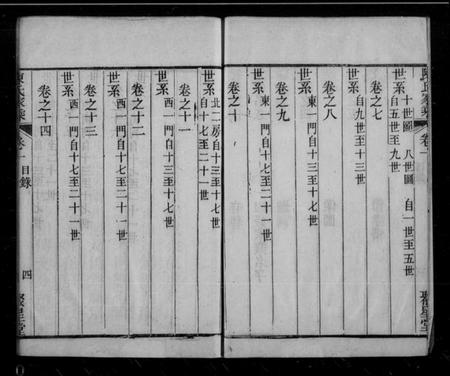 陳氏家乘 卷一
聚星堂
十世圖 八世圖 自一世至五世
世系 自五世至九世
卷之七
世系 自九世至十三世
卷之八
世系 東一門自十三至十七世
卷之九
世系 東一門自十七至二十一世
卷之十
世系 北二房自十三至十七世
自十七至二十一世
卷之十一
世系 西一門自十三至十七世
卷之十二
世系 西一門自十七至二十一世
卷之十三
世系 西一門自十七至二十一世
卷之十四
陳氏家乘 卷一 目錄 四 聚星堂